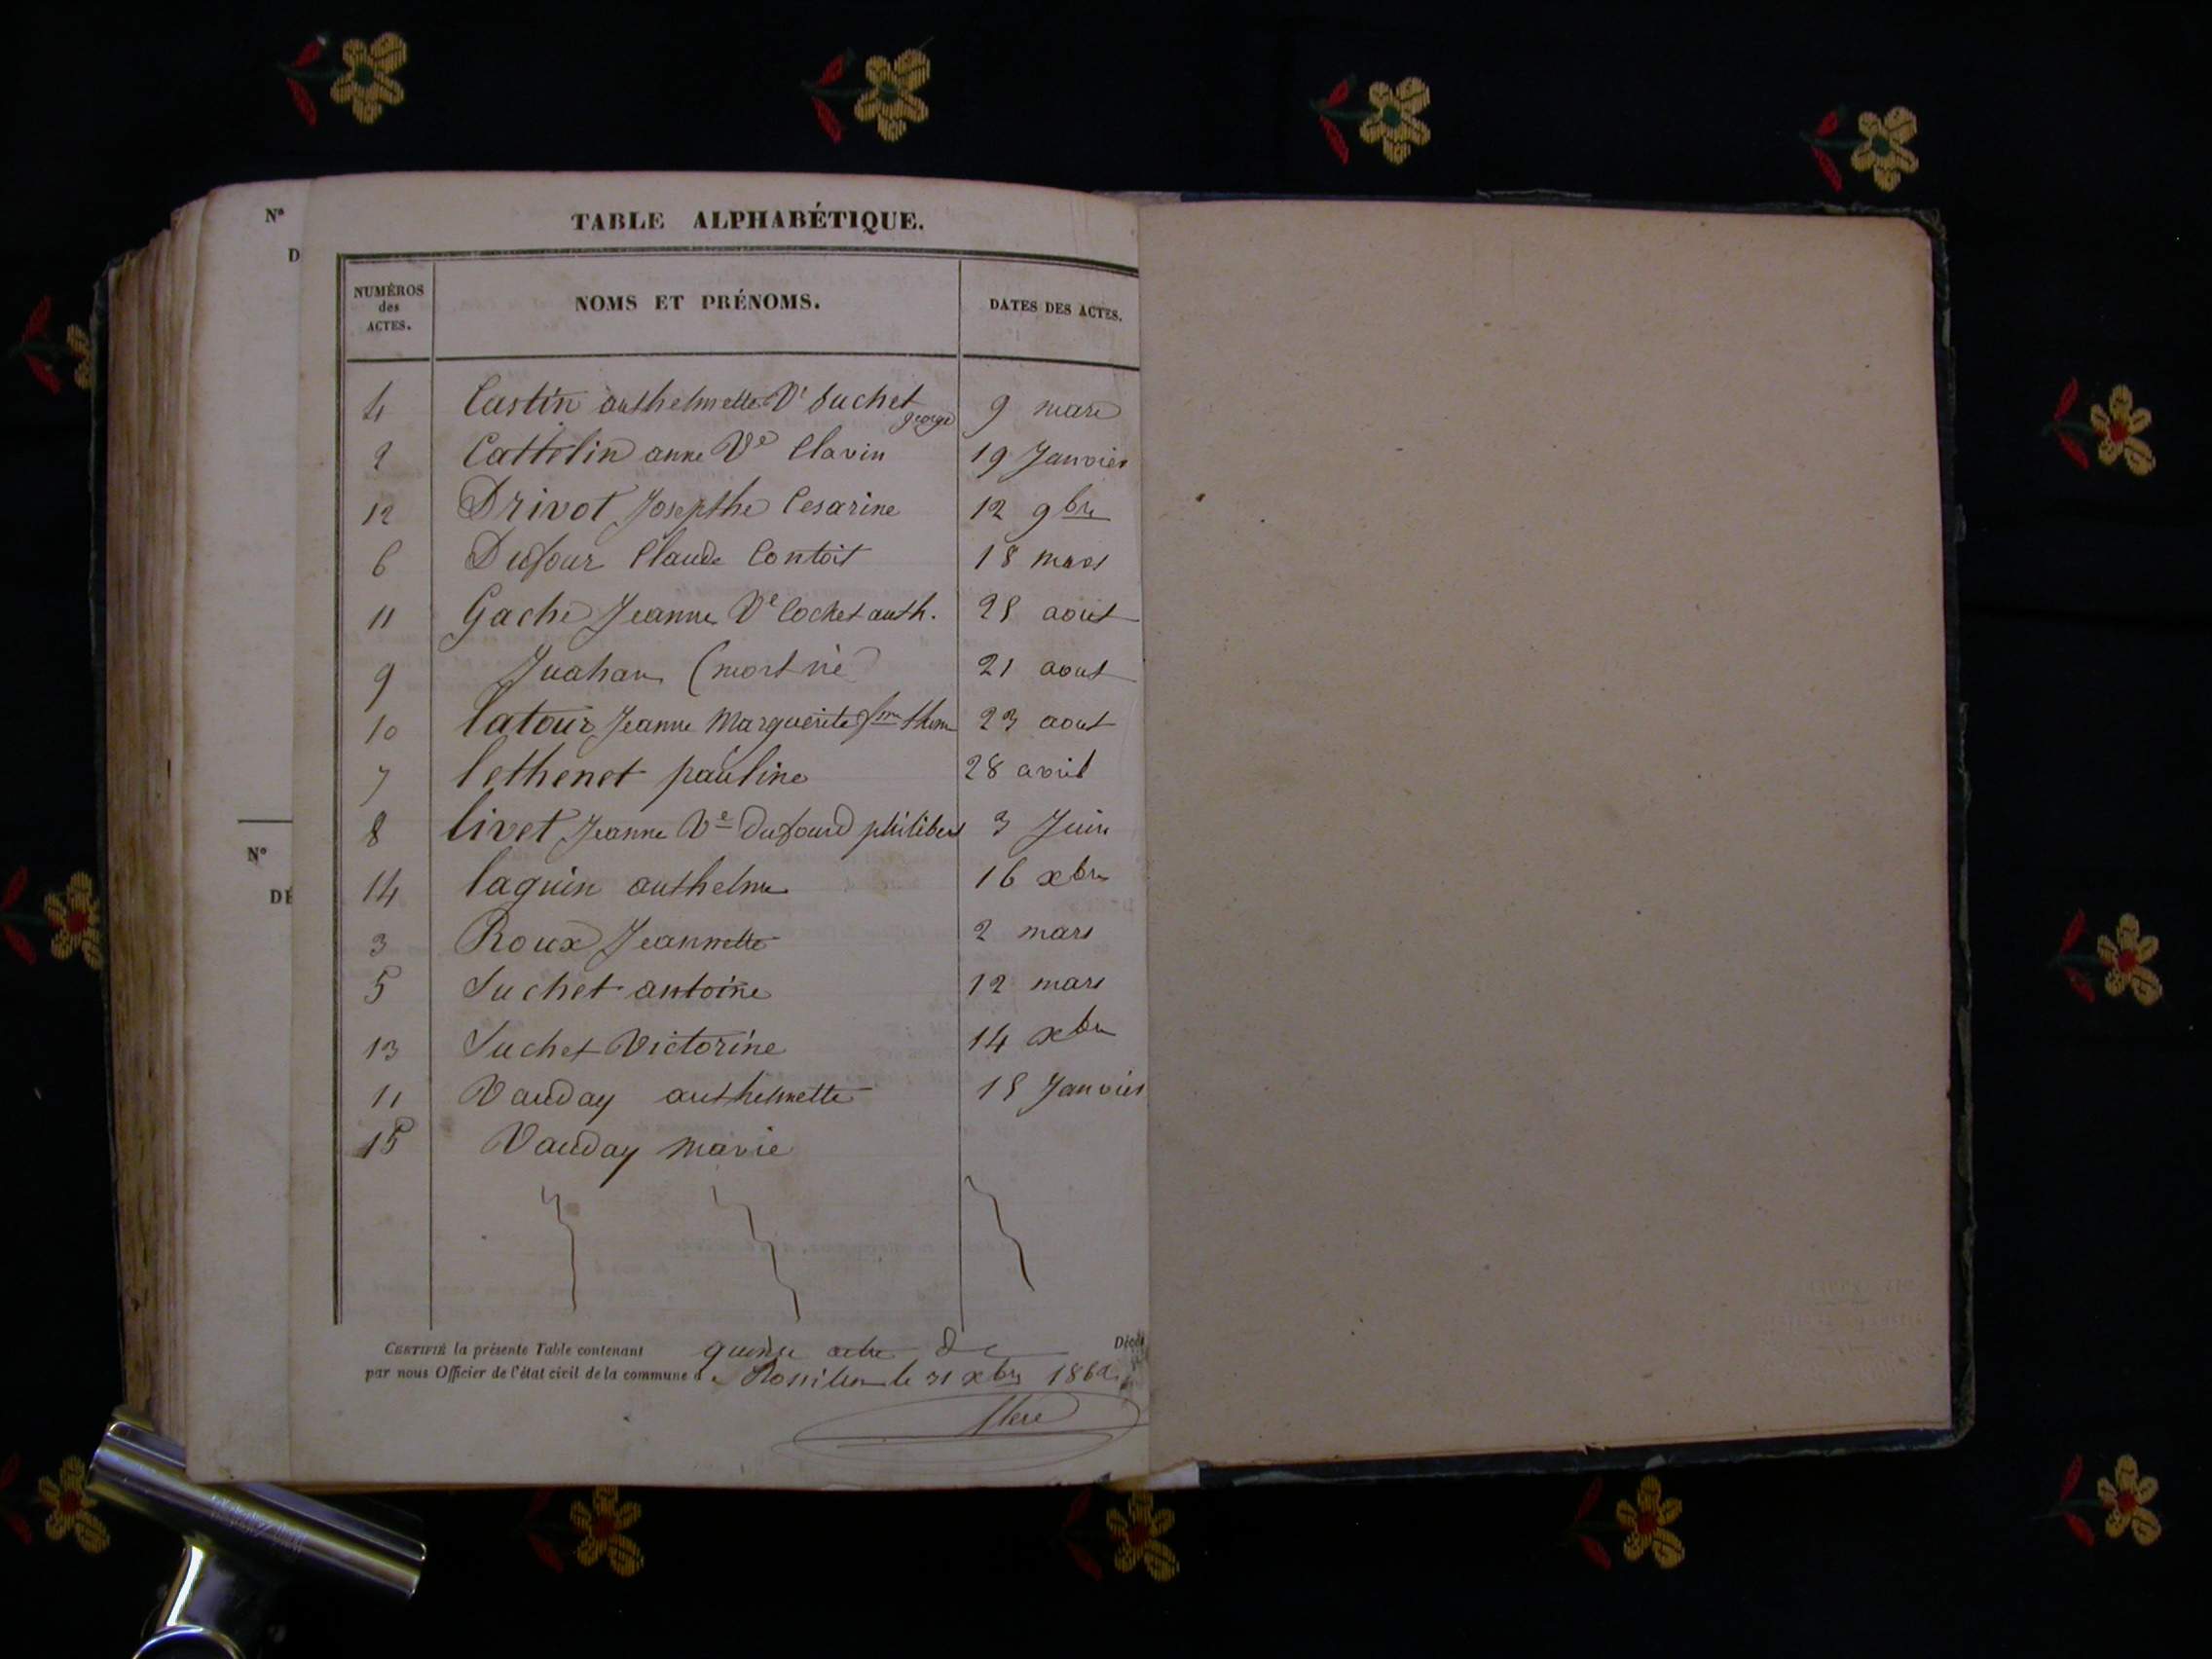 N°
D
N°
DÉ
TABLE ALPHABÉTIQUE.
NUMÉROS
des
ACTES.
NOMS ET PRÉNOMS.
DATES DES ACTES.
4 Castin anthelmette Ve Suchet george 9 mars
2 Cattelin anne Ve Clavin 19 Janvier
12 Drivot Josepthe Cesarine 12 9bre
6 Dufour Claude Contoit 18 mars
11 Gache Jeanne Ve Cochet anth. 28 aout
9 Juahan (mort né) 21 aout
10 latour Jeanne Marguerite fme 23 aout
7 lethenet pauline 28 avril
8 livet Jeanne Ve Dufourd philibert 3 Juin
14 laguin anthelme 16 xbre
3 Roux Jeannette 2 mars
5 Suchet antoine 12 mars
13 Suchet Victorine 14 xbre
11 Vauday anthelmette 18 Janvier
15 Vauday marie
CERTIFIÉ la présente Table contenant quinze actes de Décès
par nous Officier de l'état civil de la commune de Rossillon le 31 xbre 1862